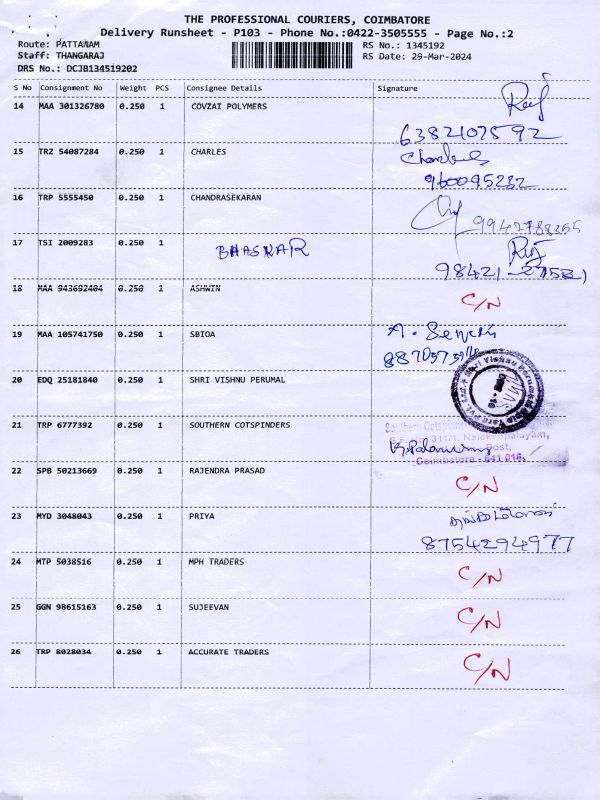 THE PROFESSIONAL COURIERS, COIMBATORE
Delivery Runsheet - P103 - Phone No.:0422-3505555 - Page No.:2
Route: PATTANAM RS No.: 1345192
Staff: THANGARAJ RS Date: 29-Mar-2024
DRS No.: DCJB134519202
S No Consignment No Weight PCS Consignee Details Signature
14 MAA 301326780 0.250 1 COVZAI POLYMERS
6382107592
15 TRZ 54087284 0.250 1 CHARLES
960045232
16 TRP 5555450 0.250 1 CHANDRASEKARAN
17 TSI 2009283 0.250 1 BHASKAR
18 MAA 943692404 0.250 1 ASHWIN C/N
19 MAA 105741750 0.250 1 SBIOA
20 EDQ 25181840 0.250 1 SHRI VISHNU PERUMAL
21 TRP 6777392 0.250 1 SOUTHERN COTSPINDERS
Southern Cotspin
311/1, Naickenpalayam,
Post,
Coimbatore - 641 016.
22 SPB 50213669 0.250 1 RAJENDRA PRASAD C/N
23 MYD 3048043 0.250 1 PRIYA
8754294977
24 MTP 5038516 0.250 1 MPH TRADERS C/N
25 GGN 98615163 0.250 1 SUJEEVAN C/N
26 TRP 8028034 0.250 1 ACCURATE TRADERS C/N